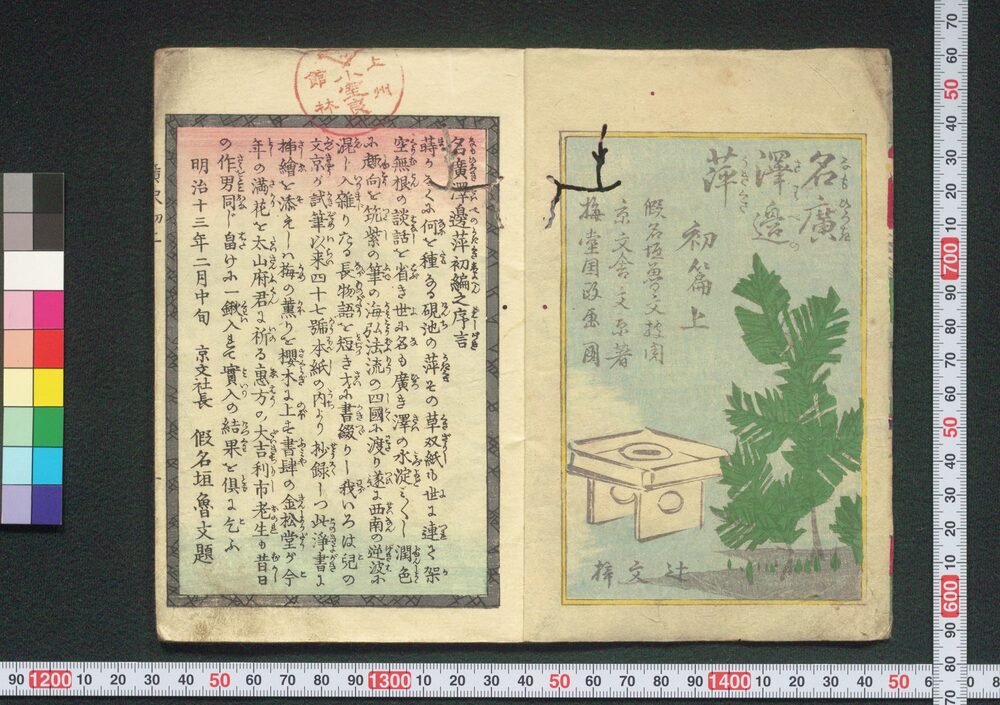 名廣
澤邊
萍
初篇上
假名垣魯文技閲
京文舎文京著
梅堂国政画図
辻文梓
名廣澤邊萍初編之序言
蒔かぬに何と種ある硯池の萍その草双紙も世に連て架
空無根の談話と省き世に名も廣き澤の水淀みなく潤色
に趣向を筑紫の筆の海弘法流の四國に渡り遂に西南の逆波に
混し入雑りたる長物語を短き才に書綴りし我いろは兒の
文京が試筆以来四十七號本紙の内より抄録しつ此浄書に
挿繪を添えしは梅の薫りを櫻木に上せ書肆の金松堂が今
年の満花を太山府君に祈る恵方の大吉利市老生も昔日
の作男同じ畠けに一鍬入れて實入の結果を倶に乞ふ
明治十三年二月中旬 京文社長 假名垣魯文題
上州
小室
館林